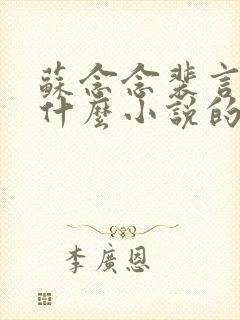 蘇念念裴言
什麼小說的
李廣恩